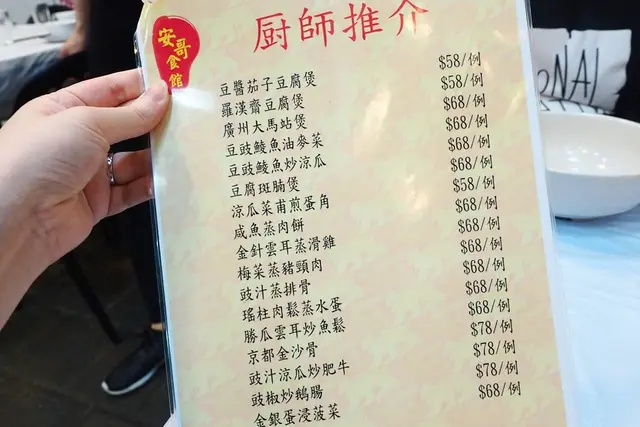 安哥食館
厨師推介
豆醬茄子豆腐煲 $58/例
羅漢齋豆腐煲 $58/例
廣州大馬站煲 $68/例
豆豉鯪魚油麥菜 $68/例
豆豉鯪魚炒涼瓜 $68/例
豆腐斑腩煲 $68/例
涼瓜菜甫煎蛋角 $58/例
咸魚蒸肉餅 $68/例
金針雲耳蒸滑雞 $68/例
梅菜蒸豬頸肉 $68/例
豉汁蒸排骨 $68/例
瑤柱肉鬆蒸水蛋 $68/例
勝瓜雲耳炒魚鬆 $68/例
京都金沙骨 $78/例
豉汁涼瓜炒肥牛 $78/例
豉椒炒鵝腸 $78/例
金銀蛋浸菠菜 $68/例